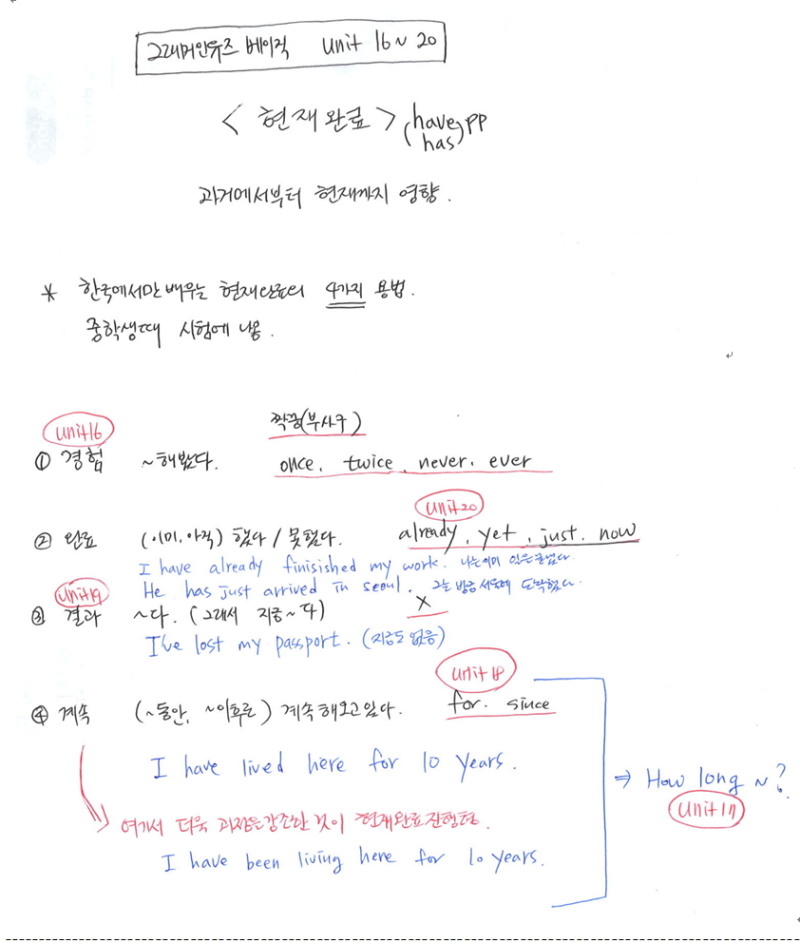 그래머인유즈 베이직 unit 16~20
< 현재완료 > (have has) pp
과거에서부터 현재까지 영향.
* 한국에서만 배우는 현재완료의 4가지 용법.
중학생때 시험에 나옴.
unit16
짝꿍(부사구)
① 경험 ~해봤다. once, twice, never, ever
unit20
② 완료 (이미, 아직) 했다 / 못했다. already, yet, just, now
I have already finisished my work. 나는 이미 일을 끝냈다
He has just arrived in seoul. 그는 방금 서울에 도착했다.
unit19
③ 결과 ~다. (그래서 지금~다) X
I've lost my passport. (지금도 없음)
unit18
④ 계속 (~동안, ~이후로) 계속 해오고있다. for. since
I have lived here for 10 years.
⇒ How long ~?
unit17
여기서 더욱 과정을강조한 것이 현재완료진행형.
I have been living here for 10 years.